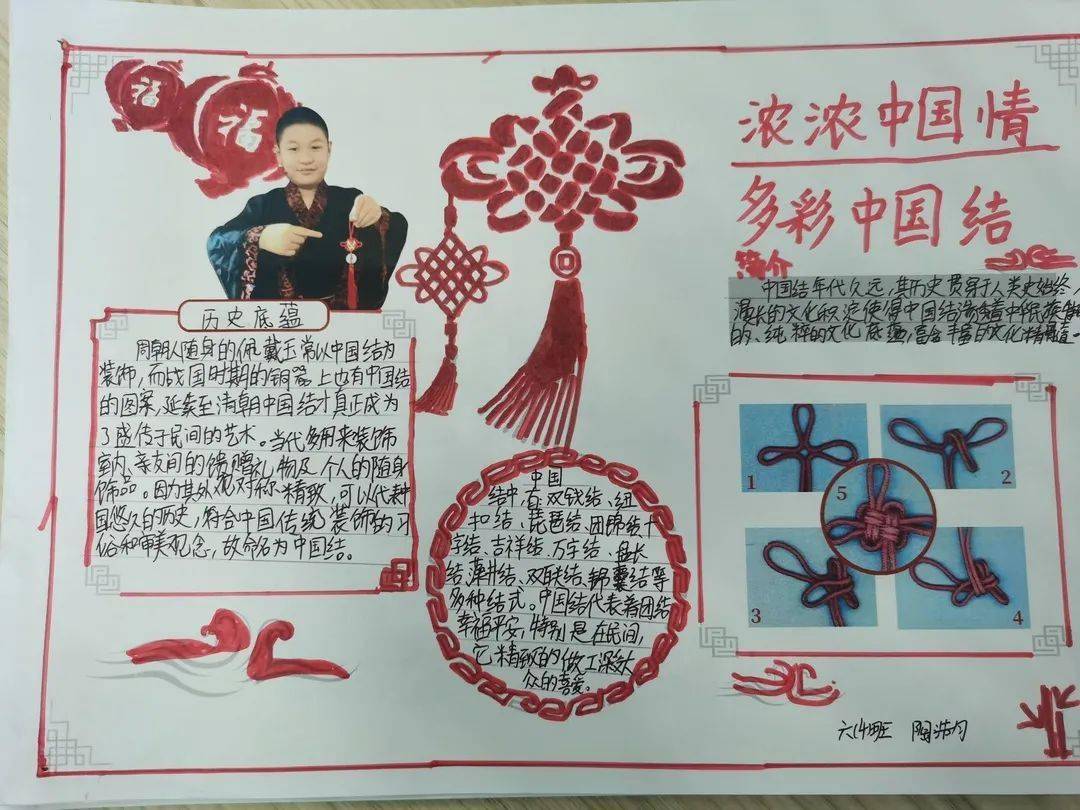 福
福
浓浓中国情
多彩中国结
简介
中国结年代久远，其历史贯穿于人类史始终，
漫长的文化积淀使得中国结渗着中华民族
的、纯粹的文化底蕴，富含丰富的文化精髓
历史底蕴
周朝人随身的佩戴玉常以中国结为
装饰，而战国时期的铜器上也有中国结
的图案，延续至清朝中国结才真正成为
了盛传于民间的艺术。当代多用来装饰
室内、亲友间的馈赠礼物及个人的随身
饰品。因为其外观对称精致，可以代表中
国悠久的历史，符合中国传统装饰的习
俗和审美观念，故命名为中国结。
中国
结中有双钱结、纽
扣结、琵琶结、团锦结、十
字结、吉祥结、万字结、盘长
结、藻井结、双联结、锦囊结等
多种结式。中国结代表着团结
幸福平安，特别是在民间，
它精致的做工深得大
众的喜爱。
1
2
5
3
4
六(4)班 陶浩